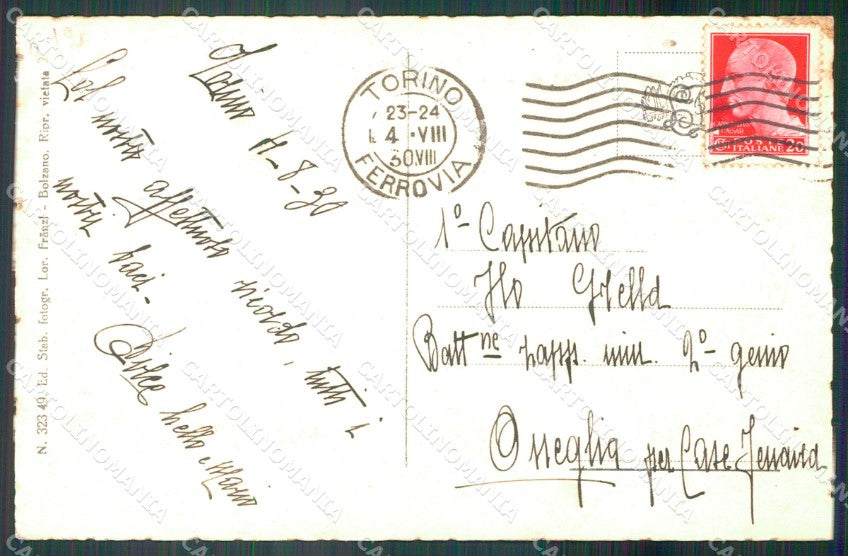 N. 323 49. Ed. Stab. fotogr. Lor. Fränzl - Bolzano. Ripr. vietata
4-8-30
Col nostro affettuoso ricordo, tutti i
nostri baci -
Dolce
TORINO
23-24
4 · VIII
30.VIII
FERROVIA
POSTE
ITALIANE 20
1º Capitano
Batt.ne zapp. min. 2º genio
Oneglia per Case
CARTOLINOMANIA